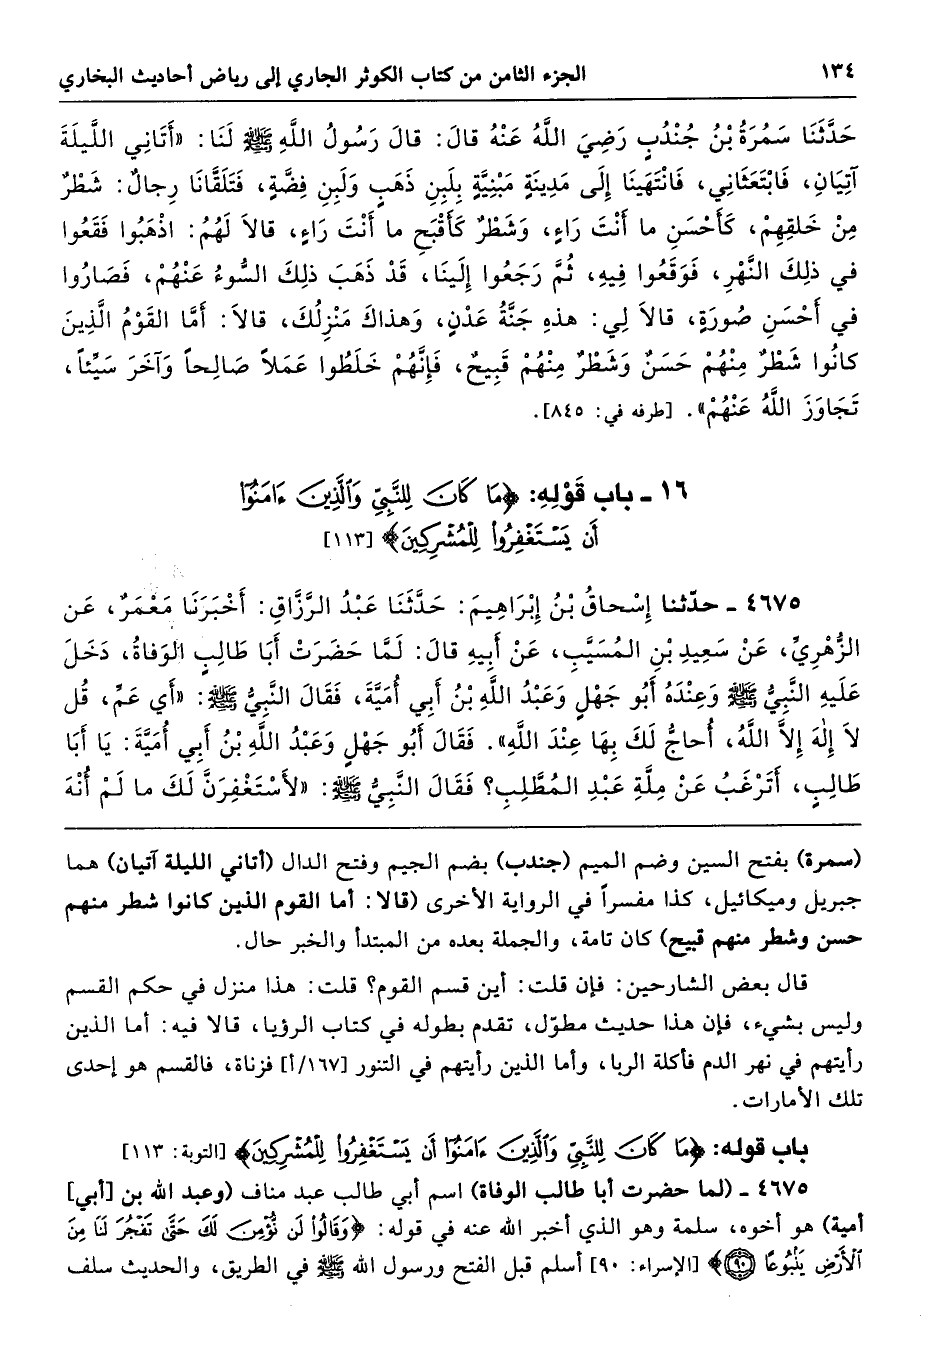 ١٣٤
الجزء الثامن من كتاب الكوثر الجاري إلى رياض أحاديث البخاري
حَدَّثَنَا سَمُرَةُ بْنُ جُنْدُبٍ رَضِيَ اللَّهُ عَنْهُ قالَ: قالَ رَسُولُ اللَّهِ ﷺ لَنَا: «أَتَانِي اللَّيلَةَ
آتِيَانِ، فَابْتَعَثَانِي، فَانْتَهَينَا إِلَى مَدِينَةٍ مَبْنِيَّةٍ بِلَبِنِ ذَهَبٍ وَلَبِنِ فِضَّةٍ، فَتَلَقَّانَا رِجالٌ: شَطْرٌ
مِنْ خَلقِهِمْ، كَأَحْسَنِ ما أَنْتَ رَاءٍ، وَشَطْرٌ كَأَقْبَحِ ما أَنْتَ رَاءٍ، قالاَ لَهُمُ: اذْهَبُوا فَقَعُوا
في ذلِكَ النَّهْرِ، فَوَقَعُوا فِيهِ، ثُمَّ رَجَعُوا إِلَينَا، قَدْ ذَهَبَ ذلِكَ السُّوءُ عَنْهُمْ، فَصَارُوا
في أَحْسَنِ صُورَةٍ، قالاَ لِي: هذهِ جَنَّةُ عَدْنٍ، وَهذاكَ مَنْزِلُكَ، قالاَ: أَمَّا القَوْمُ الَّذِينَ
كانُوا شَطْرٌ مِنْهُمْ حَسَنٌ وَشَطْرٌ مِنْهُمْ قَبِيحٌ، فَإِنَّهُمْ خَلَطُوا عَمَلاً صَالِحاً وَآخَرَ سَيِّئاً،
تَجَاوَزَ اللَّهُ عَنْهُمْ». [طرفه في: ٨٤٥].
١٦ ـ باب قَوْلِهِ: ﴿مَا كَانَ لِلنَّبِيِّ وَٱلَّذِينَ ءَامَنُوٓا۟
أَن يَسْتَغْفِرُوا۟ لِلْمُشْرِكِينَ﴾ [١١٣]
٤٦٧٥ ـ حدّثنا إِسْحاقُ بْنُ إِبْرَاهِيمَ: حَدَّثَنَا عَبْدُ الرَّزَّاقِ: أَخْبَرَنَا مَعْمَرٌ، عَنِ
الزُّهْرِيِّ، عَنْ سَعِيدِ بْنِ المُسَيَّبِ، عَنْ أَبِيهِ قالَ: لَمَّا حَضَرَتْ أَبَا طَالِبٍ الوَفاةُ، دَخَلَ
عَلَيهِ النَّبِيُّ ﷺ وَعِنْدَهُ أَبُو جَهْلٍ وَعَبْدُ اللَّهِ بْنُ أَبِي أُمَيَّةَ، فَقَالَ النَّبِيُّ ﷺ: «أَي عَمِّ، قُل
لاَ إِلٰهَ إِلاَّ اللَّهُ، أُحاجُّ لَكَ بِهَا عِنْدَ اللَّهِ». فَقَالَ أَبُو جَهْلٍ وَعَبْدُ اللَّهِ بْنُ أَبِي أُمَيَّةَ: يَا أَبَا
طَالِبٍ، أَتَرْغَبُ عَنْ مِلَّةِ عَبْدِ المُطَّلِبِ؟ فَقَالَ النَّبِيُّ ﷺ: «لأَسْتَغْفِرَنَّ لَكَ ما لَمْ أُنْهَ
(سمرة) بفتح السين وضم الميم (جندب) بضم الجيم وفتح الدال (أتاني الليلة آتيان) هما
جبريل وميكائيل، كذا مفسراً في الرواية الأخرى (قالا: أما القوم الذين كانوا شطر منهم
حسن وشطر منهم قبيح) كان تامة، والجملة بعده من المبتدأ والخبر حال.
قال بعض الشارحين: فإن قلت: أين قسم القوم؟ قلت: هذا منزل في حكم القسم
وليس بشيء، فإن هذا حديث مطوّل، تقدم بطوله في كتاب الرؤيا، قالا فيه: أما الذين
رأيتهم في نهر الدم فأكلة الربا، وأما الذين رأيتهم في التنور [١٦٧/أ] فزناة، فالقسم هو إحدى
تلك الأمارات.
باب قوله: ﴿مَا كَانَ لِلنَّبِيِّ وَٱلَّذِينَ ءَامَنُوٓا۟ أَن يَسْتَغْفِرُوا۟ لِلْمُشْرِكِينَ﴾ [التوبة: ١١٣]
٤٦٧٥ ـ (لما حضرت أبا طالب الوفاة) اسم أبي طالب عبد مناف (وعبد الله بن [أبي]
أمية) هو أخوه، سلمة وهو الذي أخبر الله عنه في قوله: ﴿وَقَالُوا۟ لَن نُّؤْمِنَ لَكَ حَتَّىٰ تَفْجُرَ لَنَا مِنَ
ٱلْأَرْضِ يَنۢبُوعًا ۝٩٠﴾ [الإسراء: ٩٠] أسلم قبل الفتح ورسول الله ﷺ في الطريق، والحديث سلف